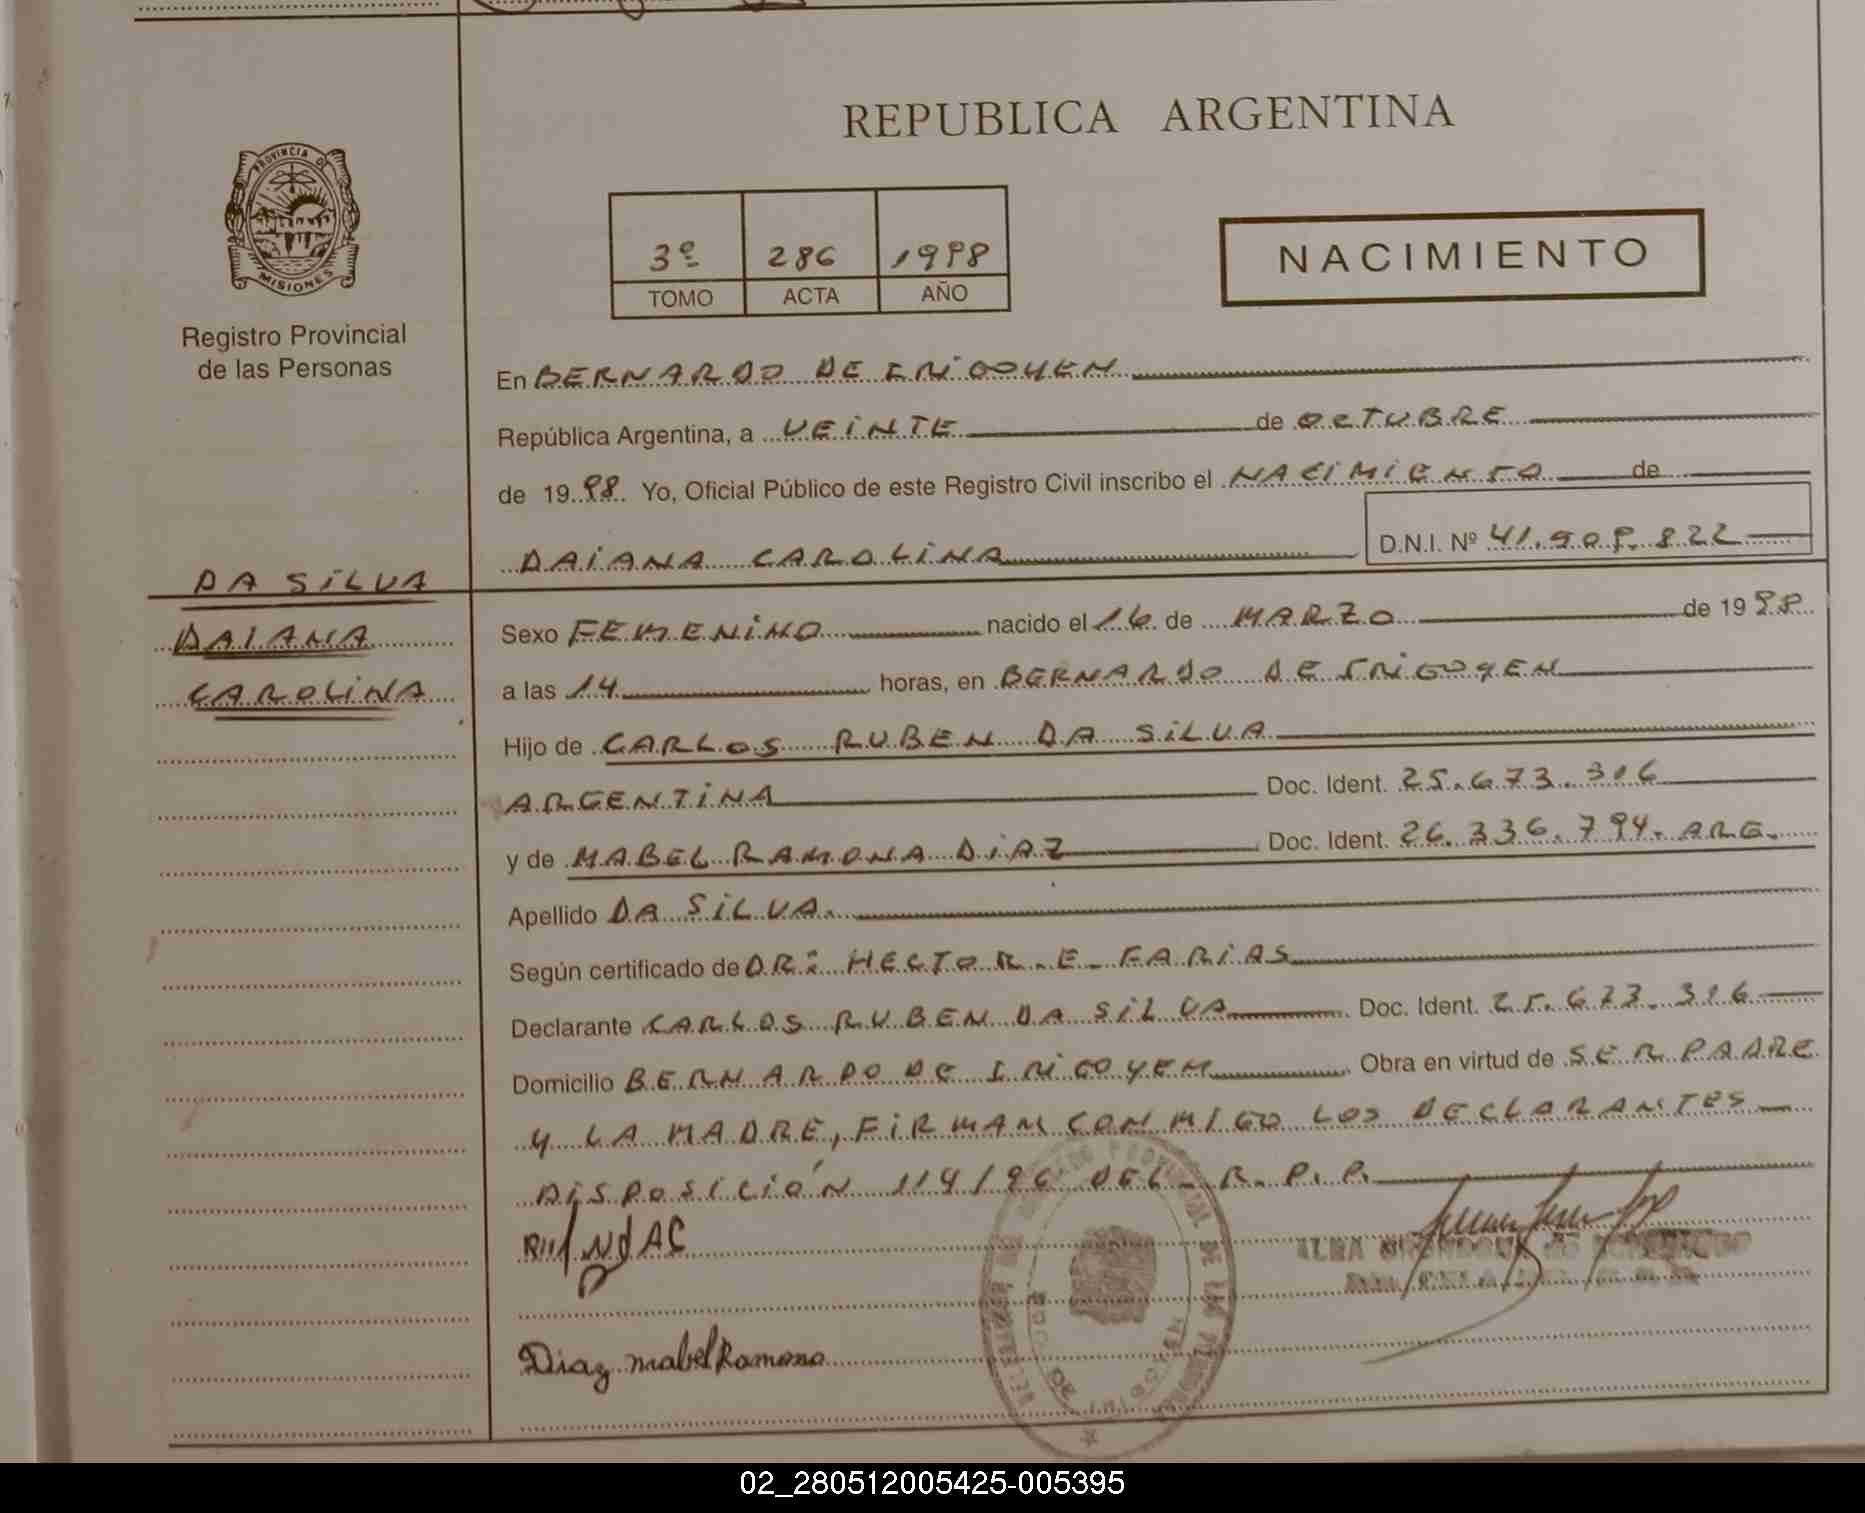 REPUBLICA ARGENTINA
PROVINCIA DE
MISIONES
Registro Provincial
de las Personas
3º 286 1998
TOMO ACTA AÑO
NACIMIENTO
En BERNARDO DE IRIGOYEN
República Argentina, a VEINTE de OCTUBRE
de 1998 Yo, Oficial Público de este Registro Civil inscribo el NACIMIENTO de
DAIANA CAROLINA D.N.I. Nº 41.909.822
DA SILVA
DAIANA
CAROLINA
Sexo FEMENINO nacido el 16 de MARZO de 1998
a las 14 horas, en BERNARDO DE IRIGOYEN
Hijo de CARLOS RUBEN DA SILVA
ARGENTINA Doc. Ident. 25.673.316
y de MABEL RAMONA DIAZ Doc. Ident. 26.336.794. ARG.
Apellido DA SILVA.
Según certificado de DR: HECTOR. E. FARIAS
Declarante CARLOS RUBEN DA SILVA Doc. Ident. 25.673.316
Domicilio BERNARDO DE IRIGOYEN Obra en virtud de SER PADRE
Y LA MADRE, FIRMAN CONMIGO LOS DECLARANTES
DISPOSICIÓN 114/96 DEL R.P.P.
Diaz Mabel Ramona
02_280512005425-005395